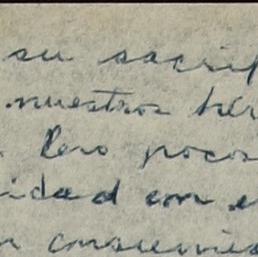 su sacrif
nuestros her
Pero pocos
idad con e
n consecuencia